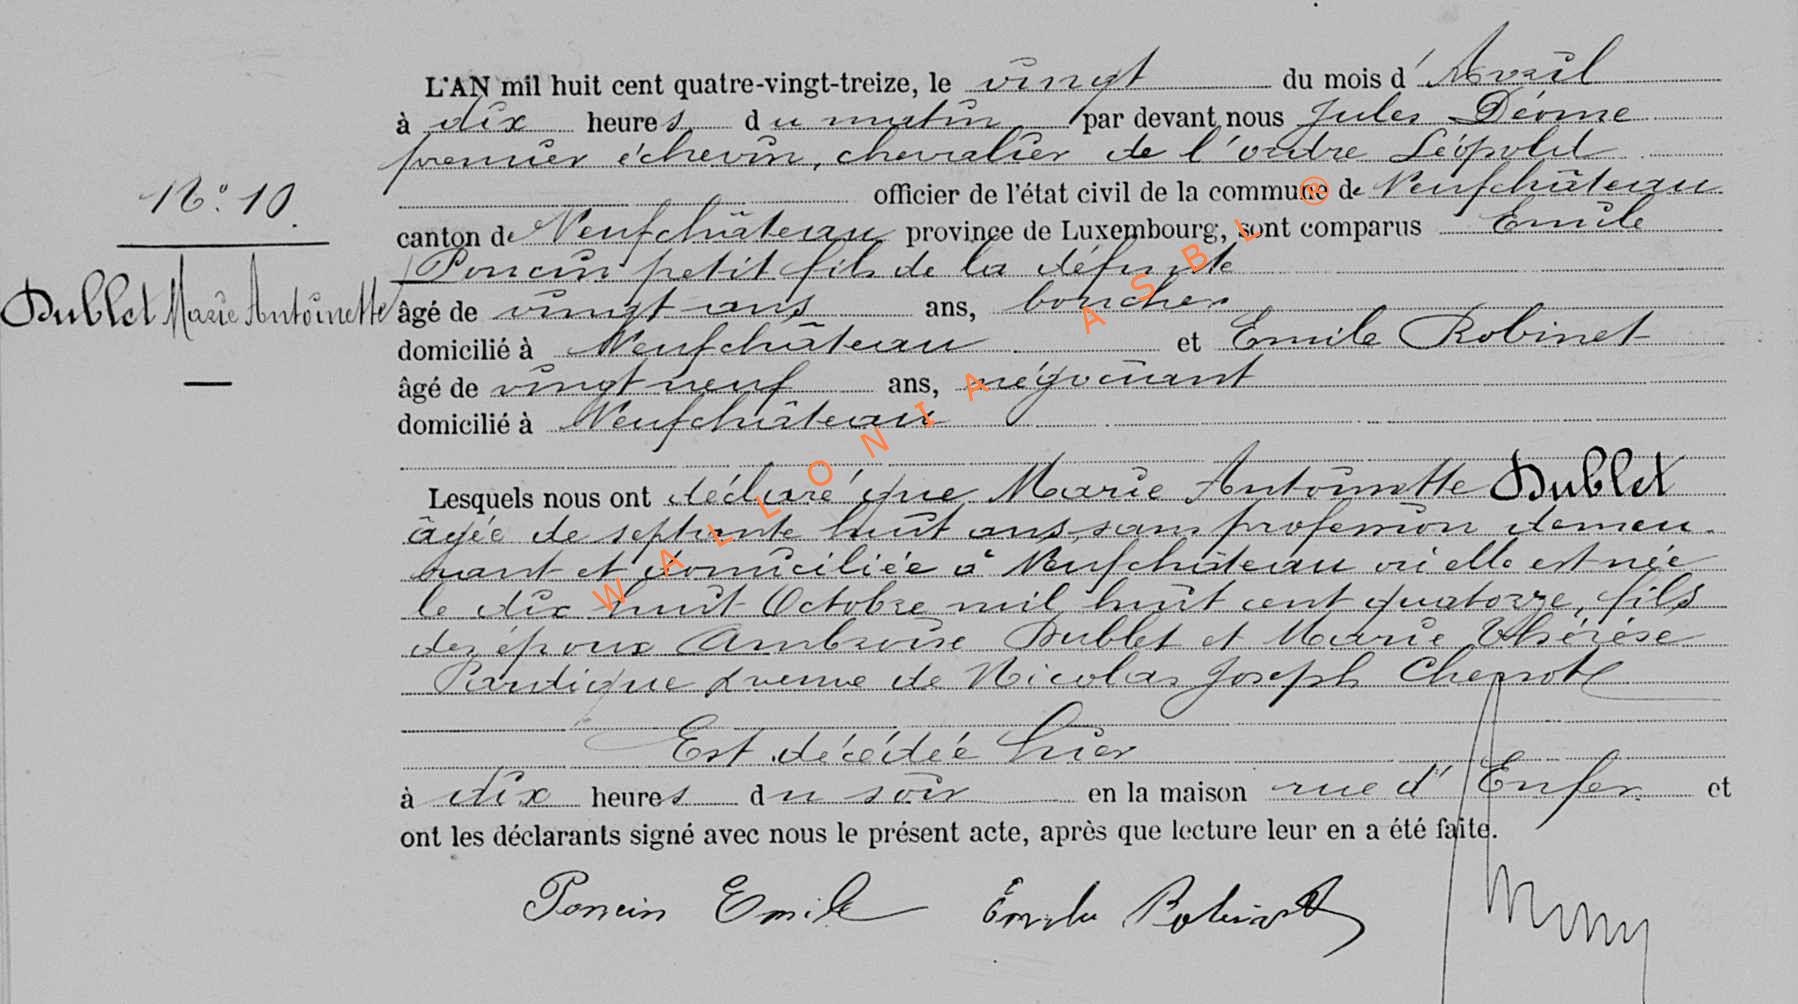 L'AN mil huit cent quatre-vingt-treize, le vingt du mois d'Avril
à dix heures du matin par devant nous Jules Déome
premier échevin, chevalier de l'ordre Léopold
N° 10.
officier de l'état civil de la commune de Neufchâteau
canton de Neufchâteau province de Luxembourg, sont comparus Emile
Poncin petit fils de la défunte
Dublet Marie Antoinette
âgé de vingt ans ans, boucher
domicilié à Neufchâteau et Emile Robinet
âgé de vingt neuf ans, négociant
domicilié à Neufchâteau
Lesquels nous ont déclaré que Marie Antoinette Dublet
âgée de septante huit ans, sans profession demeu-
rant et domiciliée à Neufchâteau où elle est née
le dix huit Octobre mil huit cent quatorze, fils
des époux Ambroise Dublet et Marie Thérèse
veuve de Nicolas Joseph
Est décédée hier
à dix heures du soir en la maison rue d'Enfer et
ont les déclarants signé avec nous le présent acte, après que lecture leur en a été faite.
Poncin Emile Emile Robinet
WALLONIA ASBL ®